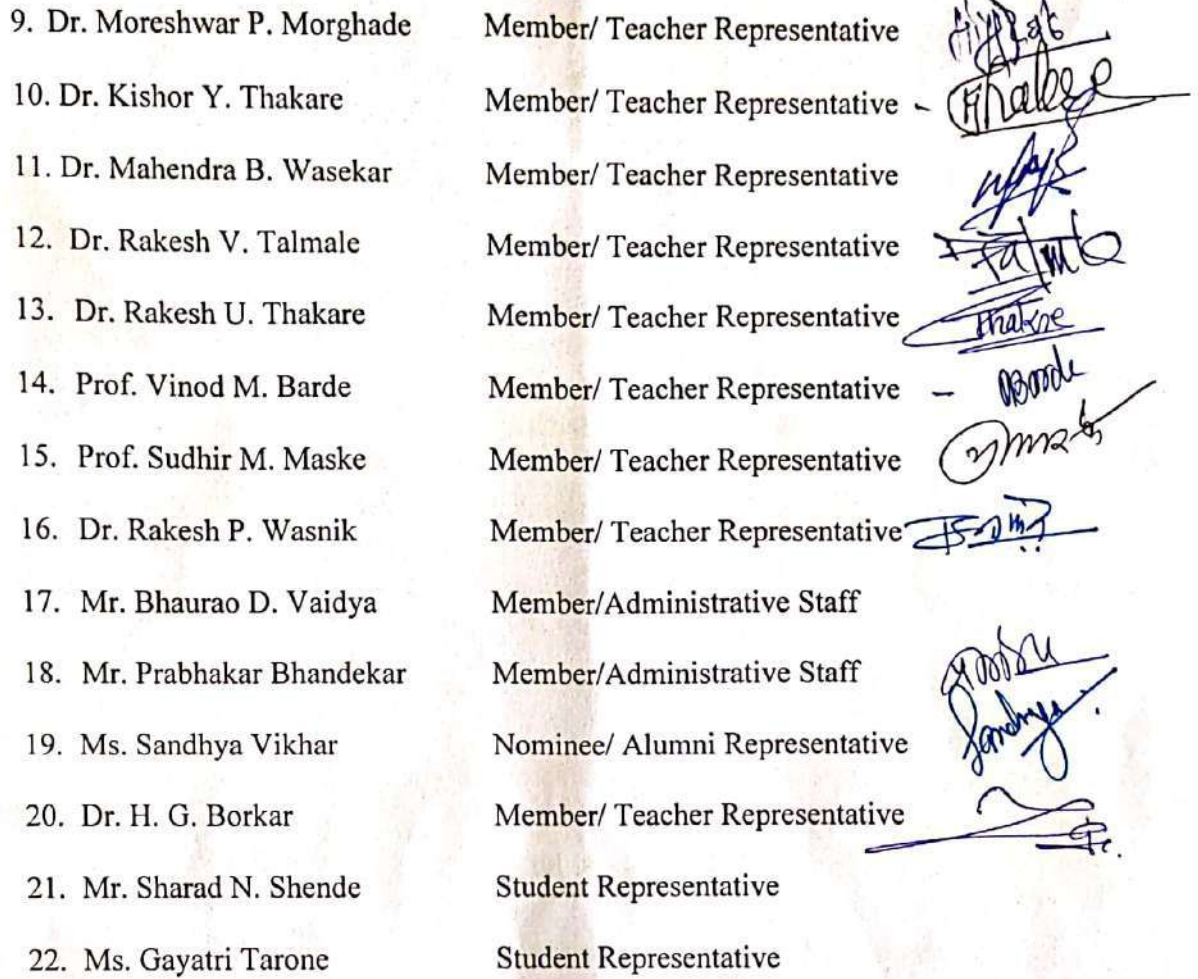 9. Dr. Moreshwar P. Morghade Member/ Teacher Representative
10. Dr. Kishor Y. Thakare Member/ Teacher Representative -
11. Dr. Mahendra B. Wasekar Member/ Teacher Representative
12. Dr. Rakesh V. Talmale Member/ Teacher Representative
13. Dr. Rakesh U. Thakare Member/ Teacher Representative
14. Prof. Vinod M. Barde Member/ Teacher Representative -
15. Prof. Sudhir M. Maske Member/ Teacher Representative
16. Dr. Rakesh P. Wasnik Member/ Teacher Representative
17. Mr. Bhaurao D. Vaidya Member/Administrative Staff
18. Mr. Prabhakar Bhandekar Member/Administrative Staff
19. Ms. Sandhya Vikhar Nominee/ Alumni Representative Sandhya
20. Dr. H. G. Borkar Member/ Teacher Representative
21. Mr. Sharad N. Shende Student Representative
22. Ms. Gayatri Tarone Student Representative